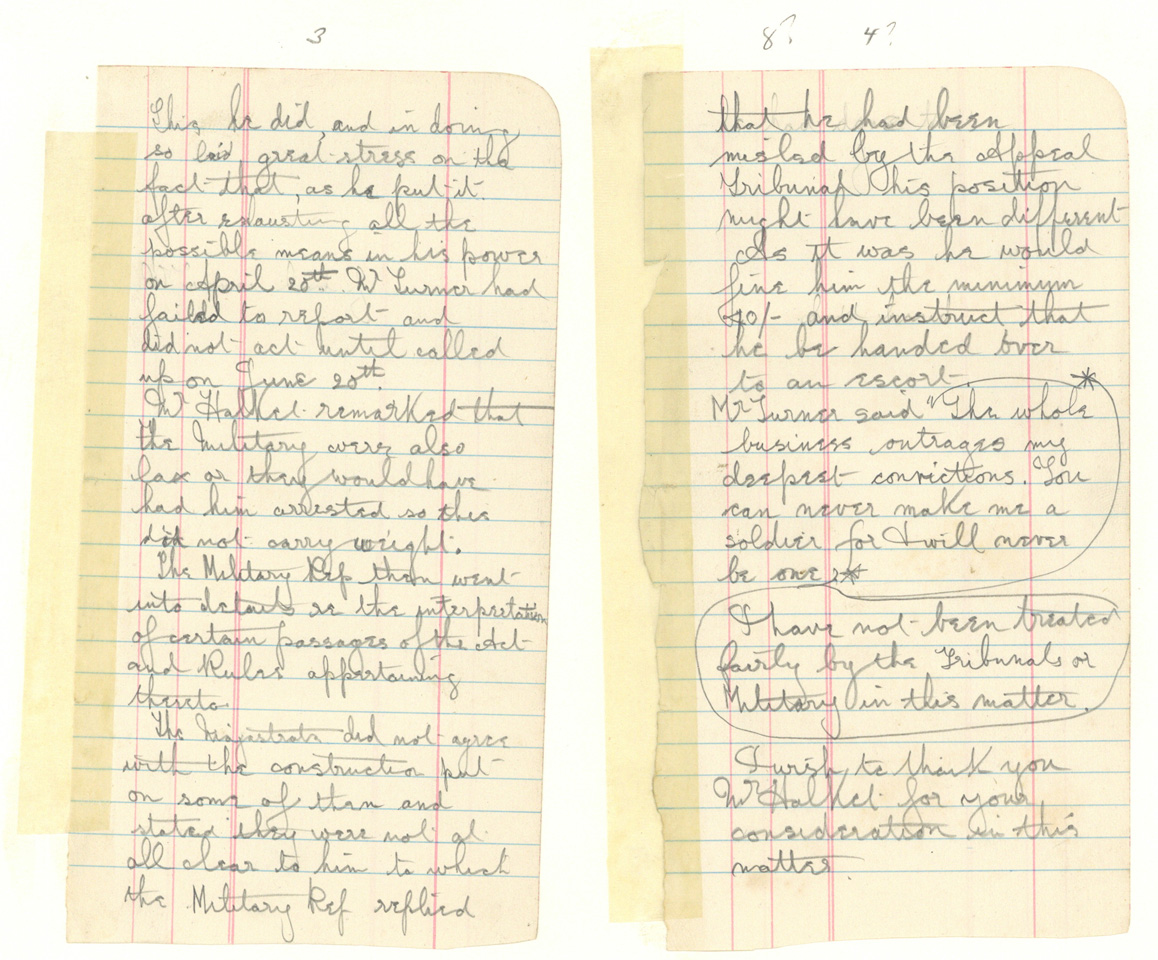 3
This he did, and in doing
so laid great stress on the
fact that, as he put it
after exausting all the
possible means in his power
on April 20th. Mr Turner had
failed to report and
did not act until called
up on June 20th.
Mr Halkel remarked that
the Military were also
lax or they would have
had him arrested so this
did not carry weight.
The Military Rep then went
into details re the interpretation
of certain passages of the Act
and Rules appertaining
thereto.
The Magistrate did not agree
with the construction put
on some of them and
stated they were not at
all clear to him to which
the Military Rep replied
8? 4?
that he had been
misled by the Appeal
Tribunal his position
might have been different
As it was he would
fine him the minimum
40/- and instruct that
he be handed over
to an escort.
Mr Turner said "The whole
business outrages my
deepest convictions. You
can never make me a
soldier for I will never
be one
I have not been treated
fairly by the Tribunals or
Military in this matter.
I wish to thank you
Mr Halkel for your
consideration in this
matter.